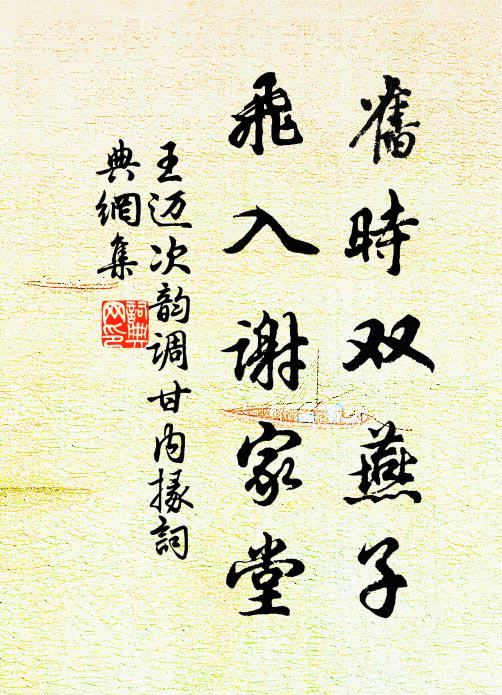 舊時双燕子
飛入謝家堂
王迈次韵调甘内掾詞
典網集
詞典
网印